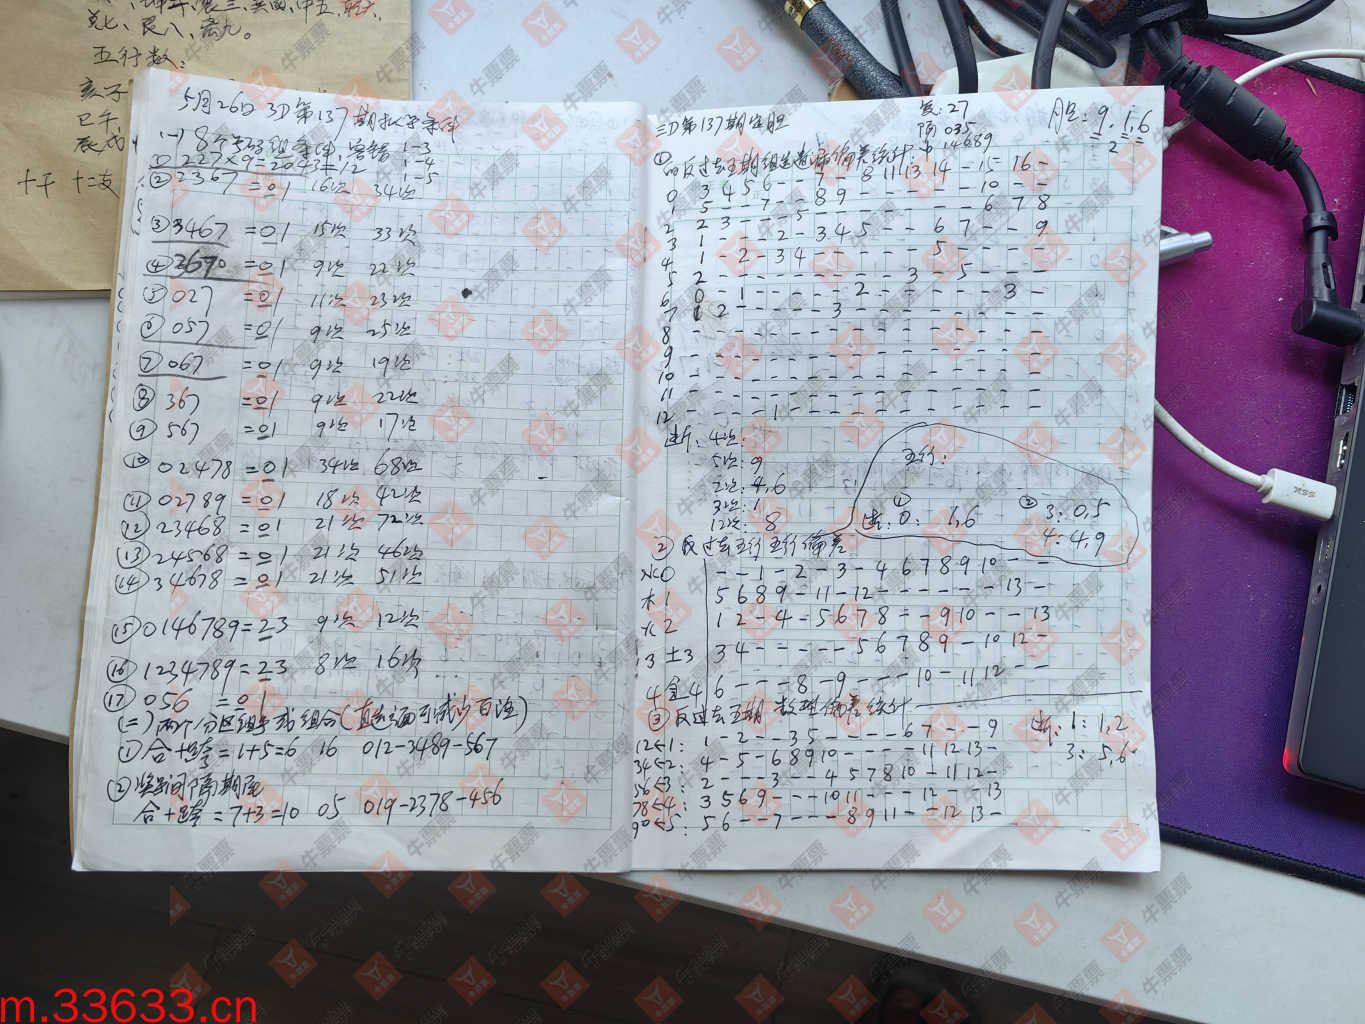 兑七、艮八、离九。
五行数:
亥子
巳午
辰戌
十干 十二支
5月26日 3D第137期拟字条件
(一) 8个号码组条件 容错 1-3
① 227×9=2043=12 1-4
② 2367 =01 16次 34次 1-5
③ 3467 =01 15次 33次
④ 3670 =01 9次 22次
⑤ 027 =01 11次 23次
⑥ 057 =01 9次 25次
⑦ 067 =01 9次 19次
⑧ 367 =01 9次 22次
⑨ 567 =01 9次 17次
⑩ 02478 =01 34次 68次
⑪ 02789 =01 18次 42次
⑫ 23468 =01 21次 72次
⑬ 24568 =01 21次 46次
⑭ 34678 =01 21次 51次
⑮ 0146789=23 9次 12次
⑯ 1234789=23 8次 16次
⑰ 056 =01
(二) 两个分区组号或组合
① 合+跨=1+5=6 16 012-3489-567
② 奖号间隔期尾
合+跨=7+3=10 05 019-2378-456
三D第137期定胆
复:27
隔 035
中 14689
胆:9.1.6
2
① 反过去五期组选遗漏偏差统计
0 3 4 5 6 - - 7 - 8 11 13 14 - 15 16 -
1 5 - - 7 - - 8 9 - - - - - - 10 - -
2 2 3 - - - 5 - - - - - - - 6 7 8
3 1 - - - 2 - 3 4 5 - - 6 7 - - 9
4 1 - 2 - 3 4 - - - - - 5 - - -
5 2 - - - - - - - - - 3 - 5 - - -
6 0 - 1 - - - - - 2 - - - - - 3 -
7 1 2 - - - - 3 - - - - - - -
8 - - - - - - - - - - - - - - -
9 - - - - - - - - - - - - - - -
10 - - - - - - - - - - - - - - -
11 - - - - - - - - - - - - - - -
12 - - - - 1 - - - - - - - - - -
断: 4次:
5次: 9
2次: 4,6
3次: 1
12次: 8
五行:
① 断: 0: 1,6
② 3: 0,5
4: 4,9
② 反过去五行五行偏差
水0 - - 1 - 2 - 3 - 4 6 7 8 9 10 - -
木1 5 6 8 9 - 11 - 12 - - - - - - 13 -
火2 1 2 - 4 - 5 6 7 8 - - 9 10 - - 13
土3 3 4 - - - - - 5 6 7 8 9 - 10 12 -
金4 6 - - - 8 - 9 - - - 10 - 11 12 - -
③ 反过去五期数理偏差统计
12←1: 1 - 2 - - 3 5 - - - - 6 7 - - 9
34←2: 4 - 5 - 6 8 9 10 - - - - 11 12 13 -
56←3: 2 - - - 3 - - 4 5 7 8 10 - 11 12 -
78←4: 3 5 6 9 - - - 10 11 - - - 12 - - 13
90←5: 5 6 - - 7 - - - 8 9 11 - - 12 13 -
断: 1: 1,2
3: 5,6
SSK
牛票票
m.33633.cn